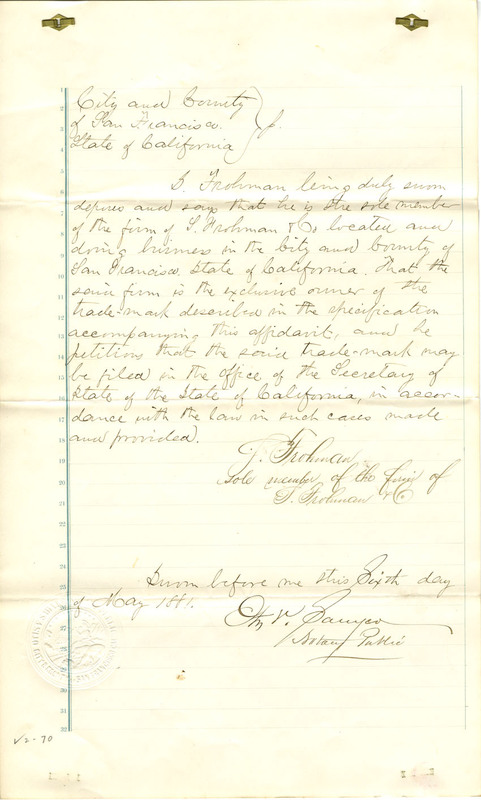 City and County
of San Francisco.
State of California
Frohman being duly sworn
deposes and says that he is the sole member
of the firm of Frohman & Co located and
doing business in the City and County of
San Francisco, State of California. That the
said firm is the exclusive owner of the
trade-mark described in the specification
accompanying this affidavit, and he
petitions that the said trade-mark may
be filed in the office of the Secretary of
State of the State of California, in accor-
dance with the law in such cases made
and provided.
Frohman
sole member of the firm of
Frohman & Co
Sworn before me this Sixth day
of May 1881.
Notary Public
1
2
3
4
5
6
7
8
9
10
11
12
13
14
15
16
17
18
19
20
21
22
23
24
25
26
27
28
29
30
31
32